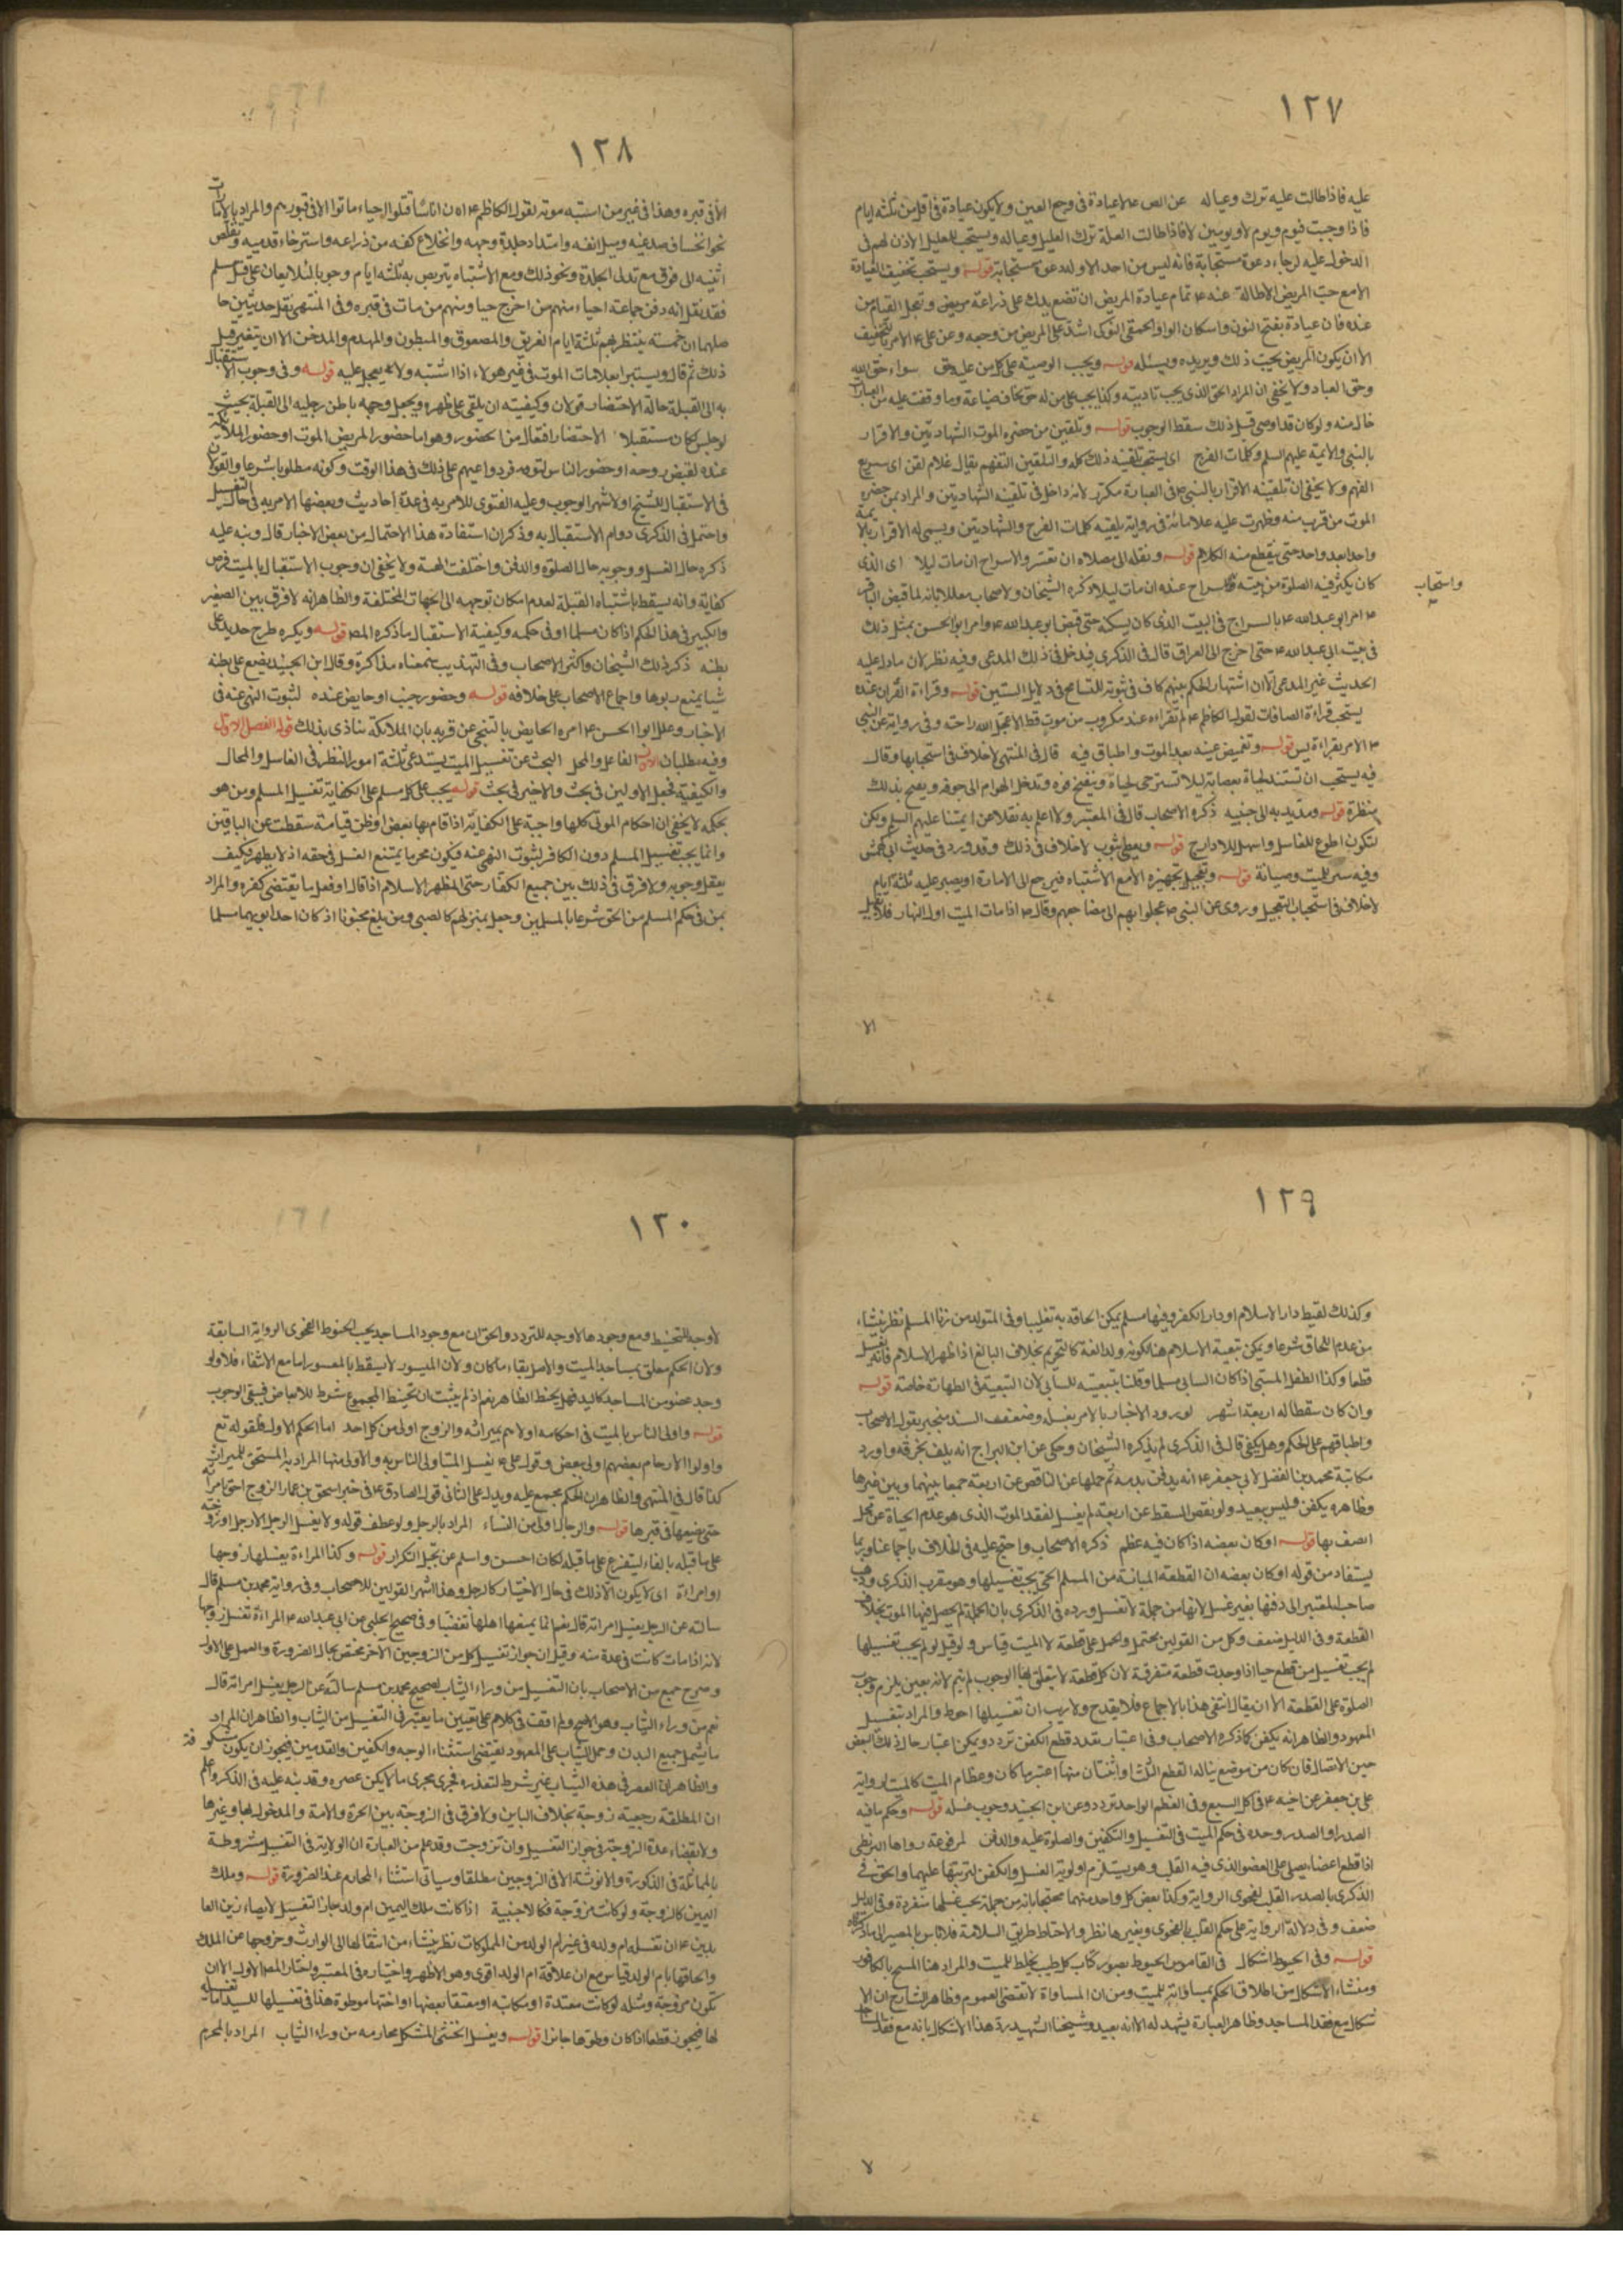 ١٢٧
عليه فاذا طالت عليه ترك وعياله عن الص ع لا عيادة فى وجع العين ولا يكون عيادة فى اقل من ثلثه ايام
فاذا وجبت فيوم ويوم لا ويومين لا فاذا طالت العلة ترك العليل وعياله ويستحب للعليل الاذن لهم فى
الدخول عليه لرجاء دعوة مستجابة فانه ليس من احد الا وله دعوة مستجابة قوله ويستحب تخفيف العيادة
الا مع حب المريض الاطالة عنه ع تمام عيادة المريض ان تضع يدك على ذراعه وتعجل القيام من
عنده فان عيادة النوكى اشد على المريض من وجعه وعن على ع الامر بالتخفيف
الا ان يكون المريض يحب ذلك ويريده ويسئله قوله ويجب الوصية على كل من عليه حق سواء حق الله
وحق العباد ولا يخفى ان المراد الحق الذى يجب تاديته وكذا يجب على من له حق يخاف ضياعه وما وقفت عليه من العبارات
خال منه ولو كان قد اوصى قبل ذلك سقط الوجوب قوله وتلقين من حضره الموت الشهادتين والاقرار
بالنبى والائمة عليهم السلم وكلمات الفرج اى يستحب تلقينه ذلك كله والتلقين التفهم يقال غلام لقن اى سريع
الفهم ولا يخفى ان تلقينه الاقرار بالنبى ص فى العبارة مكرر لانه داخل فى تلقينه الشهادتين والمراد بمن حضره
الموت من قرب منه وظهرت عليه علاماته فى رواية يلقنه كلمات الفرج والشهادتين ويسمى له الاقرار بالائمة
واحدا بعد واحد حتى ينقطع منه الكلام قوله ونقله الى مصلاه ان تعسر والاسراج ان مات ليلا اى الذى
كان يكثر فيه الصلوة من بيته والاسراج عنده ان مات ليلا ذكره الشيخان والاصحاب معللا بانه لما قبض الباقر
واستحاب
ع امر ابو عبدالله ع بالسراج فى البيت الذى كان يسكنه حتى قبض ابو عبدالله ع وامر ابو الحسن بمثل ذلك
فى بيت ابى عبدالله ع حتى اخرج الى العراق قال فى الذكرى فيدخل فى ذلك المدعى وفيه نظر لان ما دل عليه
الحديث غير المدعى الا ان اشتهار الحكم بينهم كاف فى ثبوته للتسامح فى دلايل السنن قوله وقراءة القران عنده
يستحب قراءة الصافات لقول الكاظم ع لم تقراء عند مكروب من موت قط الا عجل الله راحته وفى رواية عن النبى
ص الامر بقراءة يس قوله وتغميض عينيه بعد الموت واطباق فيه قال فى المنتهى لا خلاف فى استحبابها وقال
فيه يستحب ان تشد لحياه بعصابة ليلا تسترخى لحياه وينفتح فوه وتدخل الهوام الى جوفه ويقبح بذلك
منظره قوله ومد يديه الى جنبيه ذكره الاصحاب قال فى المعتبر ولا اعلم به نقلا عن ايمتنا عليهم السلم ولكن
لتكون اطوع للغاسل واسهل للادراج قوله ويغطى بثوب لا خلاف فى ذلك وقد ورد فى حديث
وفيه ستر للميت وصيانة قوله وتعجيل تجهيزه الا مع الاشتباه فيرجع الى الامارة او يصبر عليه ثلثة ايام
لا خلاف فى استحباب التعجيل وروى عن النبى ص عجلوا بهم الى مضاجعهم وقال ص اذا مات الميت اول النهار فلا يقيل
الا
١٢٨
الا فى قبره وهذا فى غير من اشتبه موته لقول الكاظم ع ان اناسا قتلوا احياء ما توا الا فى قبورهم والمراد بالامارات
نحو انخساف صدغيه وميل انفه وامتداد جلدة وجهه وانخلاع كفه من ذراعه واسترخاء قدميه وتقلص
انثييه الى فوق مع تدلى الجلدة ونحو ذلك ومع الاشتباه يتربص به ثلثه ايام وجوبا لئلا يعان على قتل مسلم
فقد نقل انه دفن جماعة احياء منهم من اخرج حيا ومنهم من مات فى قبره وفى المنتهى نقل حديثين حا
صلهما ان خمسة ينتظر بهم ثلثة ايام الغريق والمصعوق والمبطون والمهدوم والمدخن الا ان يتغير قبل
ذلك ثم قال ويستبراء بعلامات الموت فى غير هولاء اذا اشتبه ولا يعجل عليه قوله وفى وجوب الاستقبال
به الى القبلة حالة الاحتضار قولان وكيفيته ان يلقى على ظهره ويجعل وجهه وباطن رجليه الى القبلة بحيث
لو جلس كان مستقبلا الاحتضار افتعال من الحضور وهو اما حضور المريض الموت او حضور الملائكة
عنده لقبض روحه او حضور الناس لتوفر دواعيهم على ذلك فى هذا الوقت وكونه مطلوبا شرعا والقولان
فى الاستقبال للشيخ والاشهر الوجوب وعليه الفتوى للامر به فى عدة احاديث وبعضها الامر به فى حال الغسل
واحتمل فى الذكرى دوام الاستقبال به وذكر ان استفادة هذا الاحتمال من بعض الاخبار قال ونبه عليه
ذكره حال الغسل ووجوبه حال الصلوة والدفن واختلفت الهيئة ولا يخفى ان وجوب الاستقبال بالميت فرض
كفاية وانه يسقط باشتباه القبلة لعدم امكان توجيهه الى الجهات المختلفة والظاهر انه لا فرق بين الصغير
والكبير فى هذا الحكم اذا كان مسلما او فى حكمه وكيفية الاستقبال ما ذكره المص قوله ويكره طرح حديد على
بطنه ذكر ذلك الشيخان واكثر الاصحاب وفى التهذيب سمعناه مذاكرة وقال ابن الجنيد يضع على بطنه
شيا يمنع ربوها واجماع الاصحاب على خلافه قوله وحضور جنب او حايض عنده لثبوت النهى عنه فى
الاخبار وعلل ابو الحسن ع امره الحايض بالتنحى عن قربه بان الملائكة تتاذى بذلك قوله الفصل الاول
وفيه مطلبان الاول الفاعل والمحل البحث عن تغسيل الميت يستدعى ثلثة امور النظر فى الغاسل والمحال
والكيفية فجعل الاولين فى بحث والاخير فى بحث قوله يجب على كل مسلم على الكفاية تغسيل المسلم ومن هو
بحكمه لا يخفى ان احكام الموتى كلها واجبة على الكفاية اذا قام بها بعض او ظن قيامه سقطت عن الباقين
وانما يجب تغسيل المسلم دون الكافر لثبوت النهى عنه فيكون محرما يمتنع الغسل فى حقه اذ لا يطهر فكيف
يعقل وجوبه ولا فرق فى ذلك بين جميع الكفار حتى المظهر الاسلام اذا قال او فعل ما يقتضى كفره والمراد
بمن فى حكم المسلم من الحق شرعا بالمسلمين وجعل بمنزلهم كالصبى ومن بلغ مجنونا اذ كان احد ابويهما مسلما
١٢٩
وكذلك لقيط دار الاسلام او دار الكفر وفيها مسلم يمكن الحاقه به تغليبا وفى المتولد من زنا المسلم نظر ينشاء
من عدم اللحاق شرعا ويمكن تبعية الاسلام هنا لكونه ولدا لغة كالتحريم بخلاف البالغ اذا ظهر الاسلام فانه يغسل
قطعا وكذا الطفل المسبى اذا كان السابى مسلما وقلنا بتبعيته للسابى لا ان التبعية فى الطهارة خاصة قوله
وان كان سقطا له اربعة اشهر لورود الاخبار بالامر بغسله وضعف السند منجبر بقول الاصحاب
واطباقهم على الحكم وهل يكفن قال فى الذكرى لم يذكره الشيخان وحكى عن ابن البراج انه يلف بخرقة واورد
مكاتبة محمد بن الفضل لابى جعفر ع انه يدفن بدمه ثم حملها على الناقص عن اربعة جمعا بينهما وبين غيرها
وظاهره يكفن وليس ببعيد ولو نقص السقط عن اربعة لم يغسل لفقد الموت الذى هو عدم الحياة عن محل
اتصف بها قوله او كان بعضه اذا كان فيه عظم ذكره الاصحاب واحتج عليه فى الخلاف باجماعنا وربما
يستفاد من قوله او كان بعضه ان القطعة المبانة من المسلم الحى يجب تغسيلها وهو مقرب الذكرى وذهب
صاحب المعتبر الى دفنها بغير غسل لانها من جملة لا تغسل ورده فى الذكرى بان الجملة لم يحصل فيها الموت بخلاف
القطعة وفى الدليل ضعف وكل من القولين محتمل والحمل على قطعة الميت قياس ولو قيل لو لم يجب تغسيلها
لم يجب تغسيل من قطع حيا اذا وجدت قطعه متفرقة لان كل قطعة لا يتعلق بها الوجوب لم يتم لانه بعينه يلزم وجوب
الصلوة على القطعة الا ان يقال انتفى هذا بالاجماع فلا يقدح ولا ريب ان تغسيلها احوط والمراد بتغسيل
المعهود والظاهر انه يكفن كما ذكره الاصحاب وفى اعتبار تعدد قطع الكفن تردد ويمكن اعتبار حال ذلك البعض
حين الاتصال فان كان من موضع يناله القطع الثلث او اثنتان منها اعتبر ما كان وعظام الميت كالميت لرواية
على بن جعفر عن اخيه ع فى اكيل السبع وفى العظم الواحد تردد وعن ابن الجنيد وجوب غسله قوله وحكم ما فيه
الصدر او الصدر وحده فى حكم الميت فى التغسيل والتكفين والصلوة عليه والدفن لمرفوعة رواها البزنطى
اذا قطع اعضاء يصلى على العضو الذى فيه القلب وهو يستلزم اولوية الغسل والكفن لترتبها عليهما والحق فى
الذكرى بالصدر القلب لفحوى الرواية وكذا بعض كل واحد منهما محتجا بانه من جملة يجب غسلها منفردة وفى الدليل
ضعف وفى دلالة الرواية على حكم القلب بالفحوى وبغيرها نظر والاحتياط طريق السلامة فلا باس بالمصير الى ما ذكراه
قوله وفى الحيوط اشكال فى القاموس الحيوط بصبور كتاب كل طيب يخلط للميت والمراد هنا المسح بالكافور
ومنشاء الاشكال من اطلاق الحكم بمساواته للميت ومن ان المساواة لا تقتضى العموم وظاهر الشارح ان الا
شكال مع فقد المساجد وظاهر العبارة يشهد له الا انه بعيد وشيخنا الشهيد رد هذا الاشكال بانه مع فقد المساجد
لا
١٢٠
لا وجه للتحنيط ومع وجودها لا وجه للتردد والحق ان مع وجود المساجد يجب الحنوط لفحوى الرواية السابقة
ولان الحكم معلق بمساجد الميت والاصل بقاء ما كان ولان الميسور لا يسقط بالمعسور اما مع الانتفاء فلا ولو
وجد عضو من المساجد كاليد فهل يحنط الظاهر نعم اذ لم يثبت ان تحنيط المجموع شرط للابعاض فيبقى الوجوب
قوله واولى الناس بالميت فى احكامه اولاهم بميراثه والزوج اولى من كل احد اما الحكم الاول فلقوله تع
واولوا الارحام بعضهم اولى ببعض وقول على ع يغسل الميت اولى الناس به والاولى منها المراد به المستحق للميراث
كذا قال فى المنتهى والظاهر ان الحكم مجمع عليه ويدل على الثانى قول الصادق ع فى خبر اسحق بن عمار الزوج احق بامراته
حتى يضعها فى قبرها قوله والرجال اولى من النساء المراد بالرجل ولو عطف قوله ولا يغسل الرجل الا رجل او زوجته
على ما قبله بالفاء ليتفرع على ما قبله لكان احسن واسلم عن تخيل التكرار قوله وكذا المراءة يغسلها زوجها
او امراءة اى لا يكون الا ذلك فى حال الاختيار كالرجل وهذا اشهر القولين للاصحاب وفى رواية محمد بن مسلم قال
سالته عن الرجل يغسل امراته قال نعم انما يمنعها اهلها تعصبا وفى صحيح الحلبى عن ابى عبدالله ع المراءة تغسل زوجها
لانه اذا مات كانت فى عدة منه وقيل ان جواز تغسيل كل من الزوجين الآخر مختص بحال الضرورة والعمل على الاول
وصرح جمع من الاصحاب بان التغسيل من وراء الثياب لصحيح محمد بن مسلم سالته عن الرجل يغسل امراته قال
نعم من وراء الثياب وهو الاصح ولم اقف فى كلام على تعيين ما يعتبر فى التغسيل من الثياب والظاهر ان المراد
ما يشمل جميع البدن وحمل الثياب على المعهود يقتضى استثناء الوجه والكفين والقدمين فيجوز ان يكون مكشوفة
والظاهر ان العصر فى هذه الثياب غير شرط لتعذره فجرى مجرى ما لا يمكن عصره وقد نبه عليه فى الذكرى واعلم
ان المطلقة رجعية زوجة بخلاف الباين ولا فرق فى الزوجة بين الحرة والامة والمدخول بها وغيرها
ولا بقضاء عدة الزوجة فى جواز التغسيل وان تزوجت وقد علم من العبارة ان الولاية فى التغسيل مشروطة
بالمماثلة فى الذكورة والانوثة الا فى الزوجين مطلقا وسياتى استثناء المحارم عند الضرورة قوله وملك
اليمين كالزوجة ولو كانت مزوجة فكالاجنبية اذا كانت ملك اليمين ام ولد جاز التغسيل لايصاء زين العا
بدين ع ان تغسله ام ولده فى غير ام الولد من المملوكات نظر ينشاء من انتقالها الى الوارث وخروجها عن الملك
والحاقها بام الولد قياس مع ان علاقة ام الولد اقوى وهو الاظهر واختياره فى المعتبر واختار المص الاول الا ان
تكون مزوجة ومثله لو كانت معتدة او مكاتبة او معتقا بعضها او اختها موطوة هذا فى تغسيلها للسيد اما تغسيله
لها فيجوز قطعا اذا كان وطؤها جايزا قوله ويغسل الخنثى المشكل محارمه من وراء الثياب المراد بالمحرم